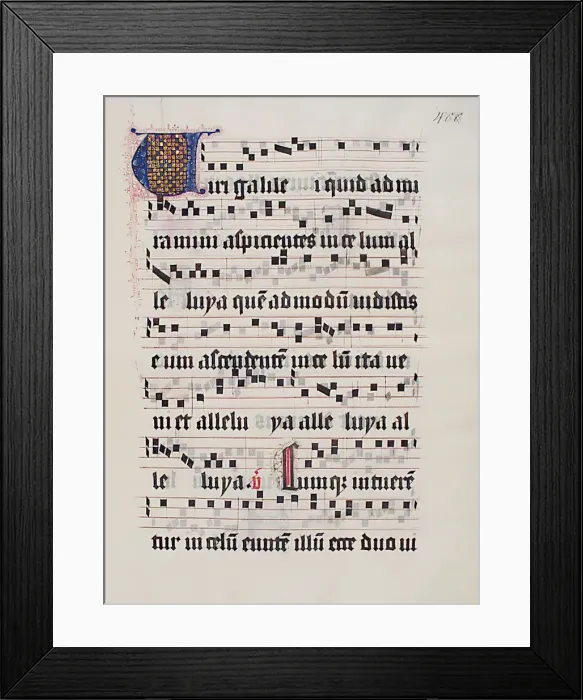 Viri galile i quid admi
ramini aspicientes in ce lum al
le luya quē admodū uidistis
e um ascendentē in ce lū ita ue
ni et allelu ya alle luya al
le luya. v̄ Cumqȝ intuerē
tur in celū euntē illū ecce duo ui